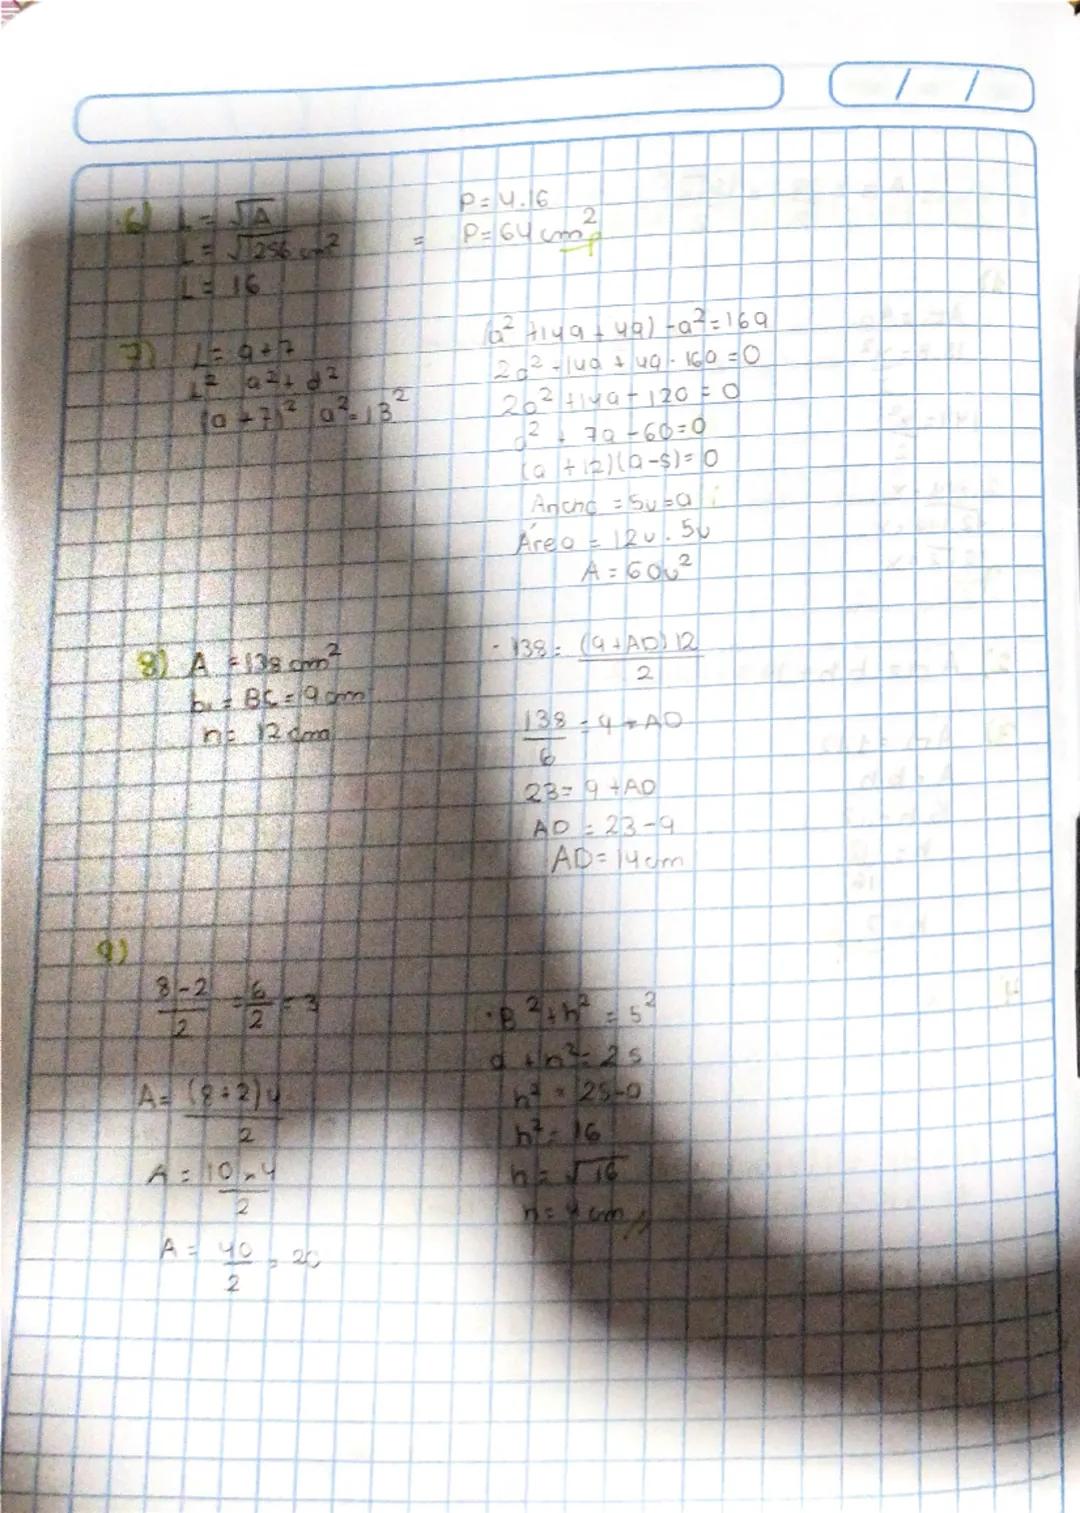 6) L = √A
L = √256 cm²
L = 16
= P = 4.16
P = 64 cm²
7) L = a+7
L² a² + d²
(a + 7)² a² = 13²
(a² + 14a + 49) + a² = 169
2a² + 14a + 49 - 169 = 0
2a² + 14a - 120 = 0
a² + 7a - 60 = 0
(a + 12)(a - 5) = 0
Ancho = 5u = a
Área = 12u . 5u
A = 60u²
8) A = 138 cm²
b₁ = BC = 9 cm
h = 12 cm
138 = (9 + AD) 12
2
138 = 9 + AD
6
23 = 9 + AD
AD = 23 - 9
AD = 14 cm
9)
8 - 2 = 6 = 3
2 2
A = (8 + 2) 4
2
A = 10 × 4
2
A = 40 = 20
2
B² + h² = 5²
9 + h² = 25
h² = 25 - 9
h² = 16
h = √16
h = 4 cm //